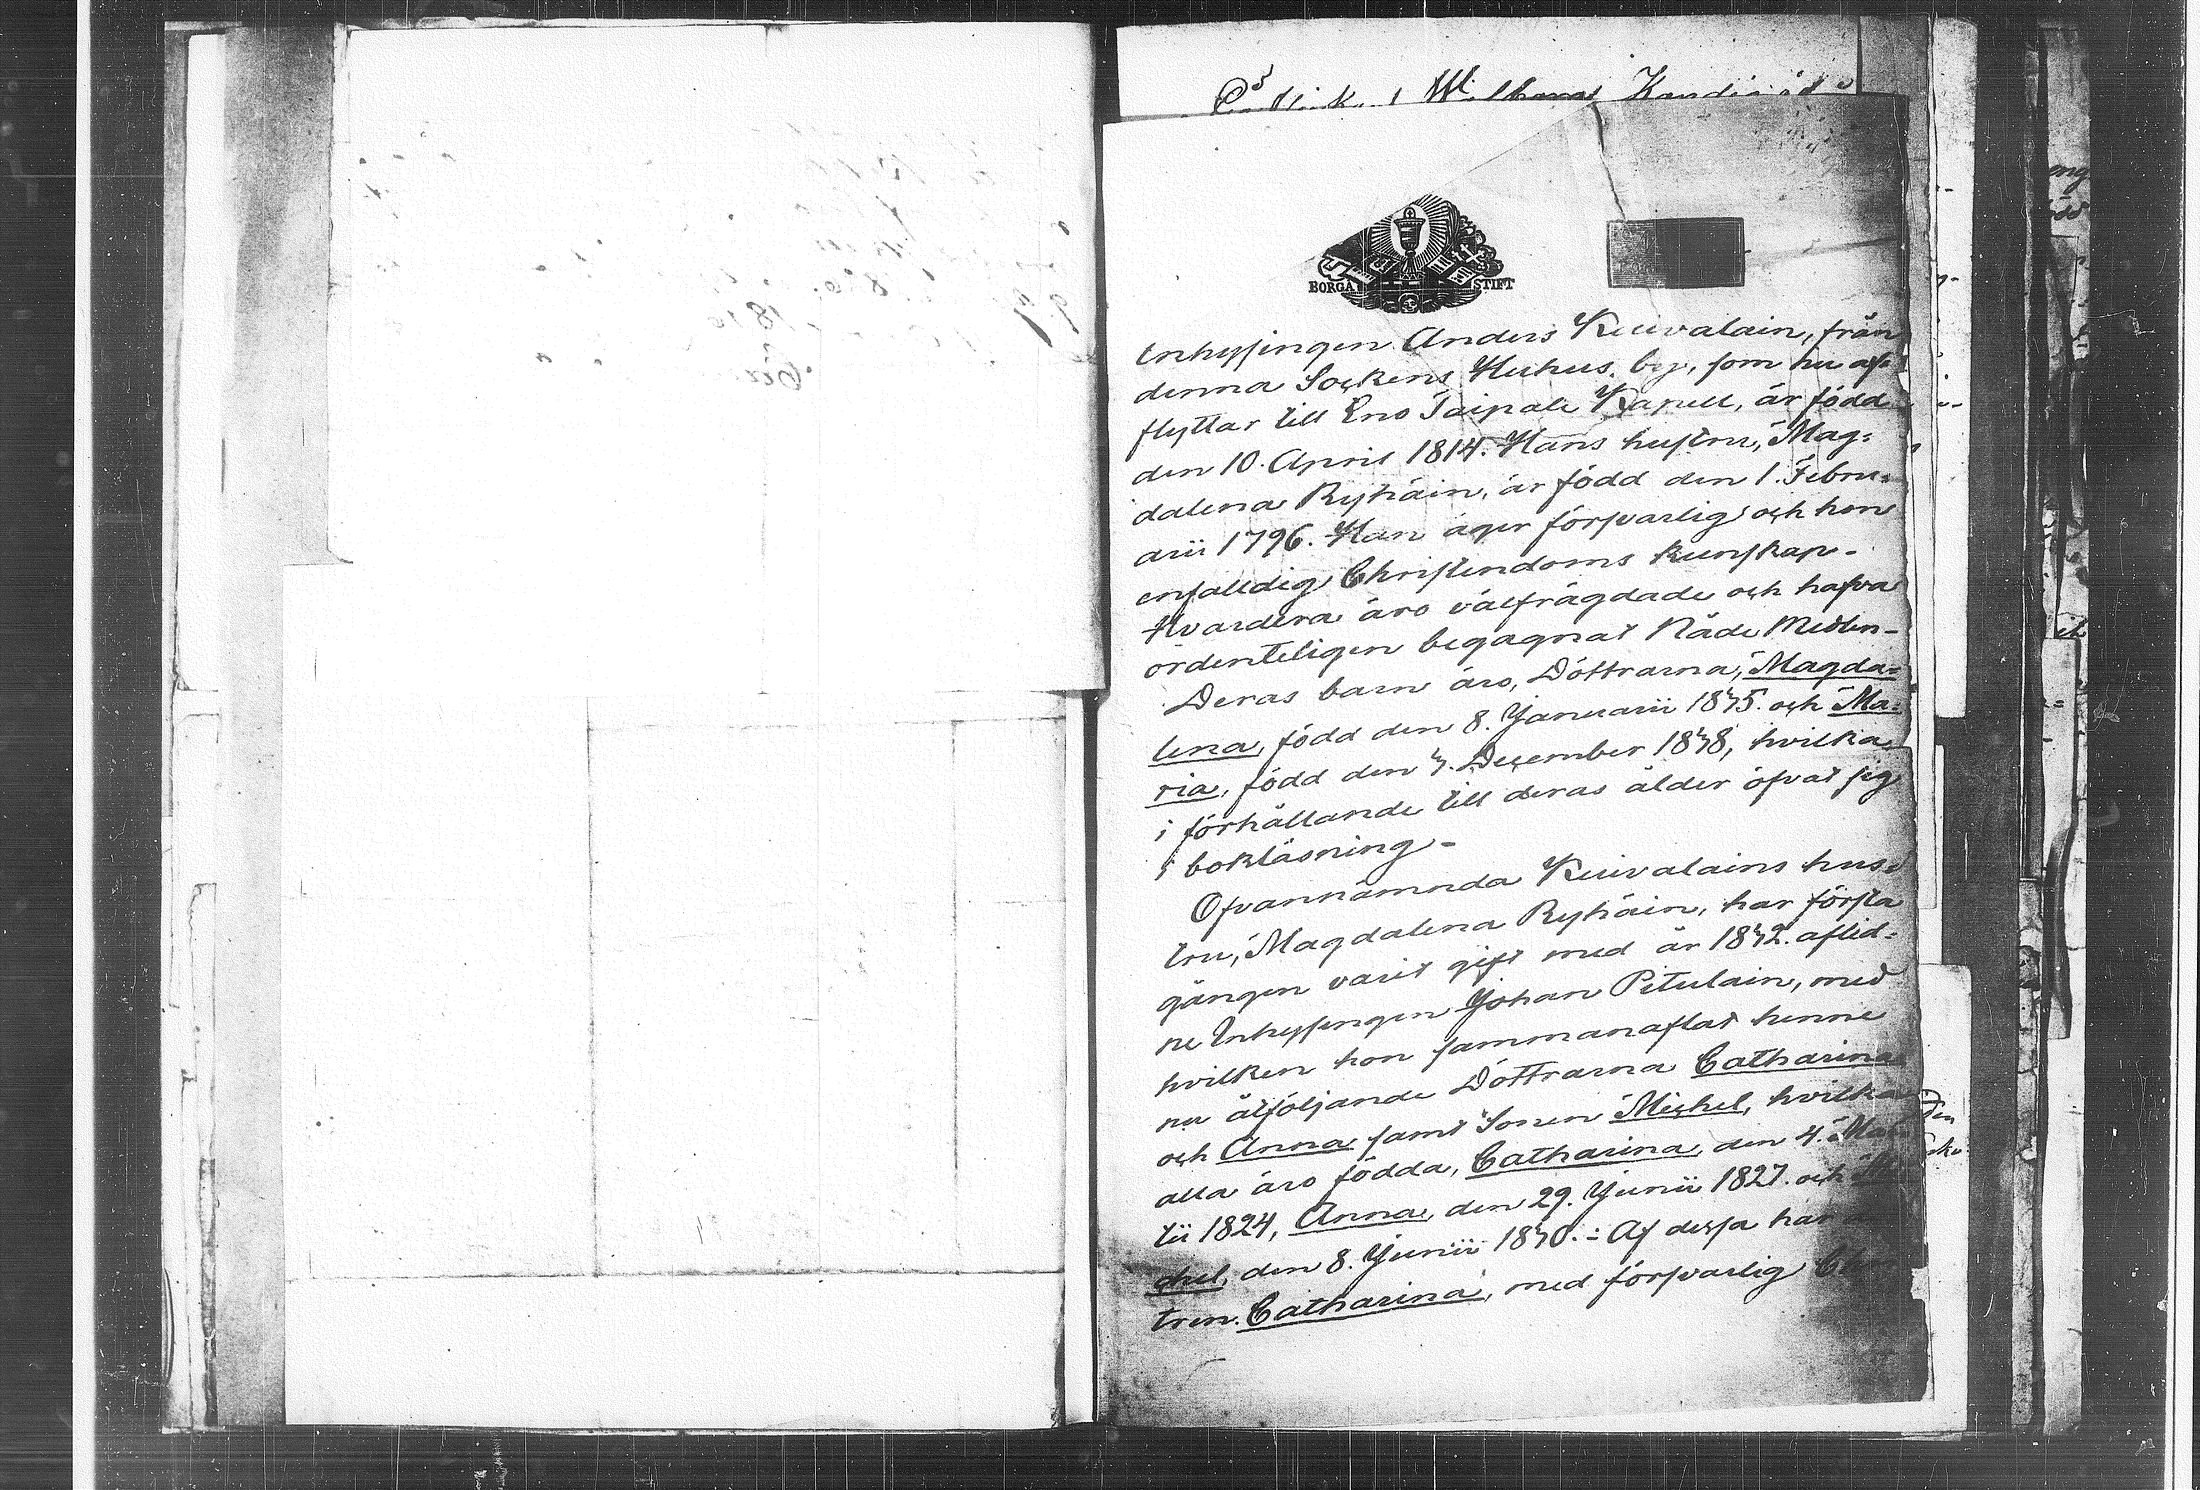 BORGÅ STIFT
Inhysingen Anders Kuivalain, från
denna Sockens Huhus by, som nu af=
flyttar till Eno Taipale Kapell, är född
den 10. April 1814. Hans hustru, Mag=
dalena Ryhäin, är född den 1. Febru=
arii 1796. Han äger försvarlig och hon
enfalldig Christendoms kunskap-
Hvardera äro välfrägdade och hafva
ordenteligen begagnat Nåde Medlen-
Deras barn äro, Döttrarna, Magda=
lena, född den 8. Januarii 1835. och Ma=
ria, född den 3. December 1838, hvilka
i förhållande till deras ålder öfvat sig
i bokläsning-
Ofvannämnda Kuivalains hus=
tru, Magdalena Ryhäin, har första
gången varit gift med år 1832. aflid=
ne Inhysingen Johan Pitulain, med
hvilken hon sammanaflat henne
nu åtföljande Döttrarna Catharina
och Anna samt Sonen Michel, hvilka
alla äro födda, Catharina, den 4. Mar
tii 1824, Anna, den 29. Junii 1827. och Mi
chel, den 8. Junii 1830.- Af dessa har
tren. Catharina, med försvarlig